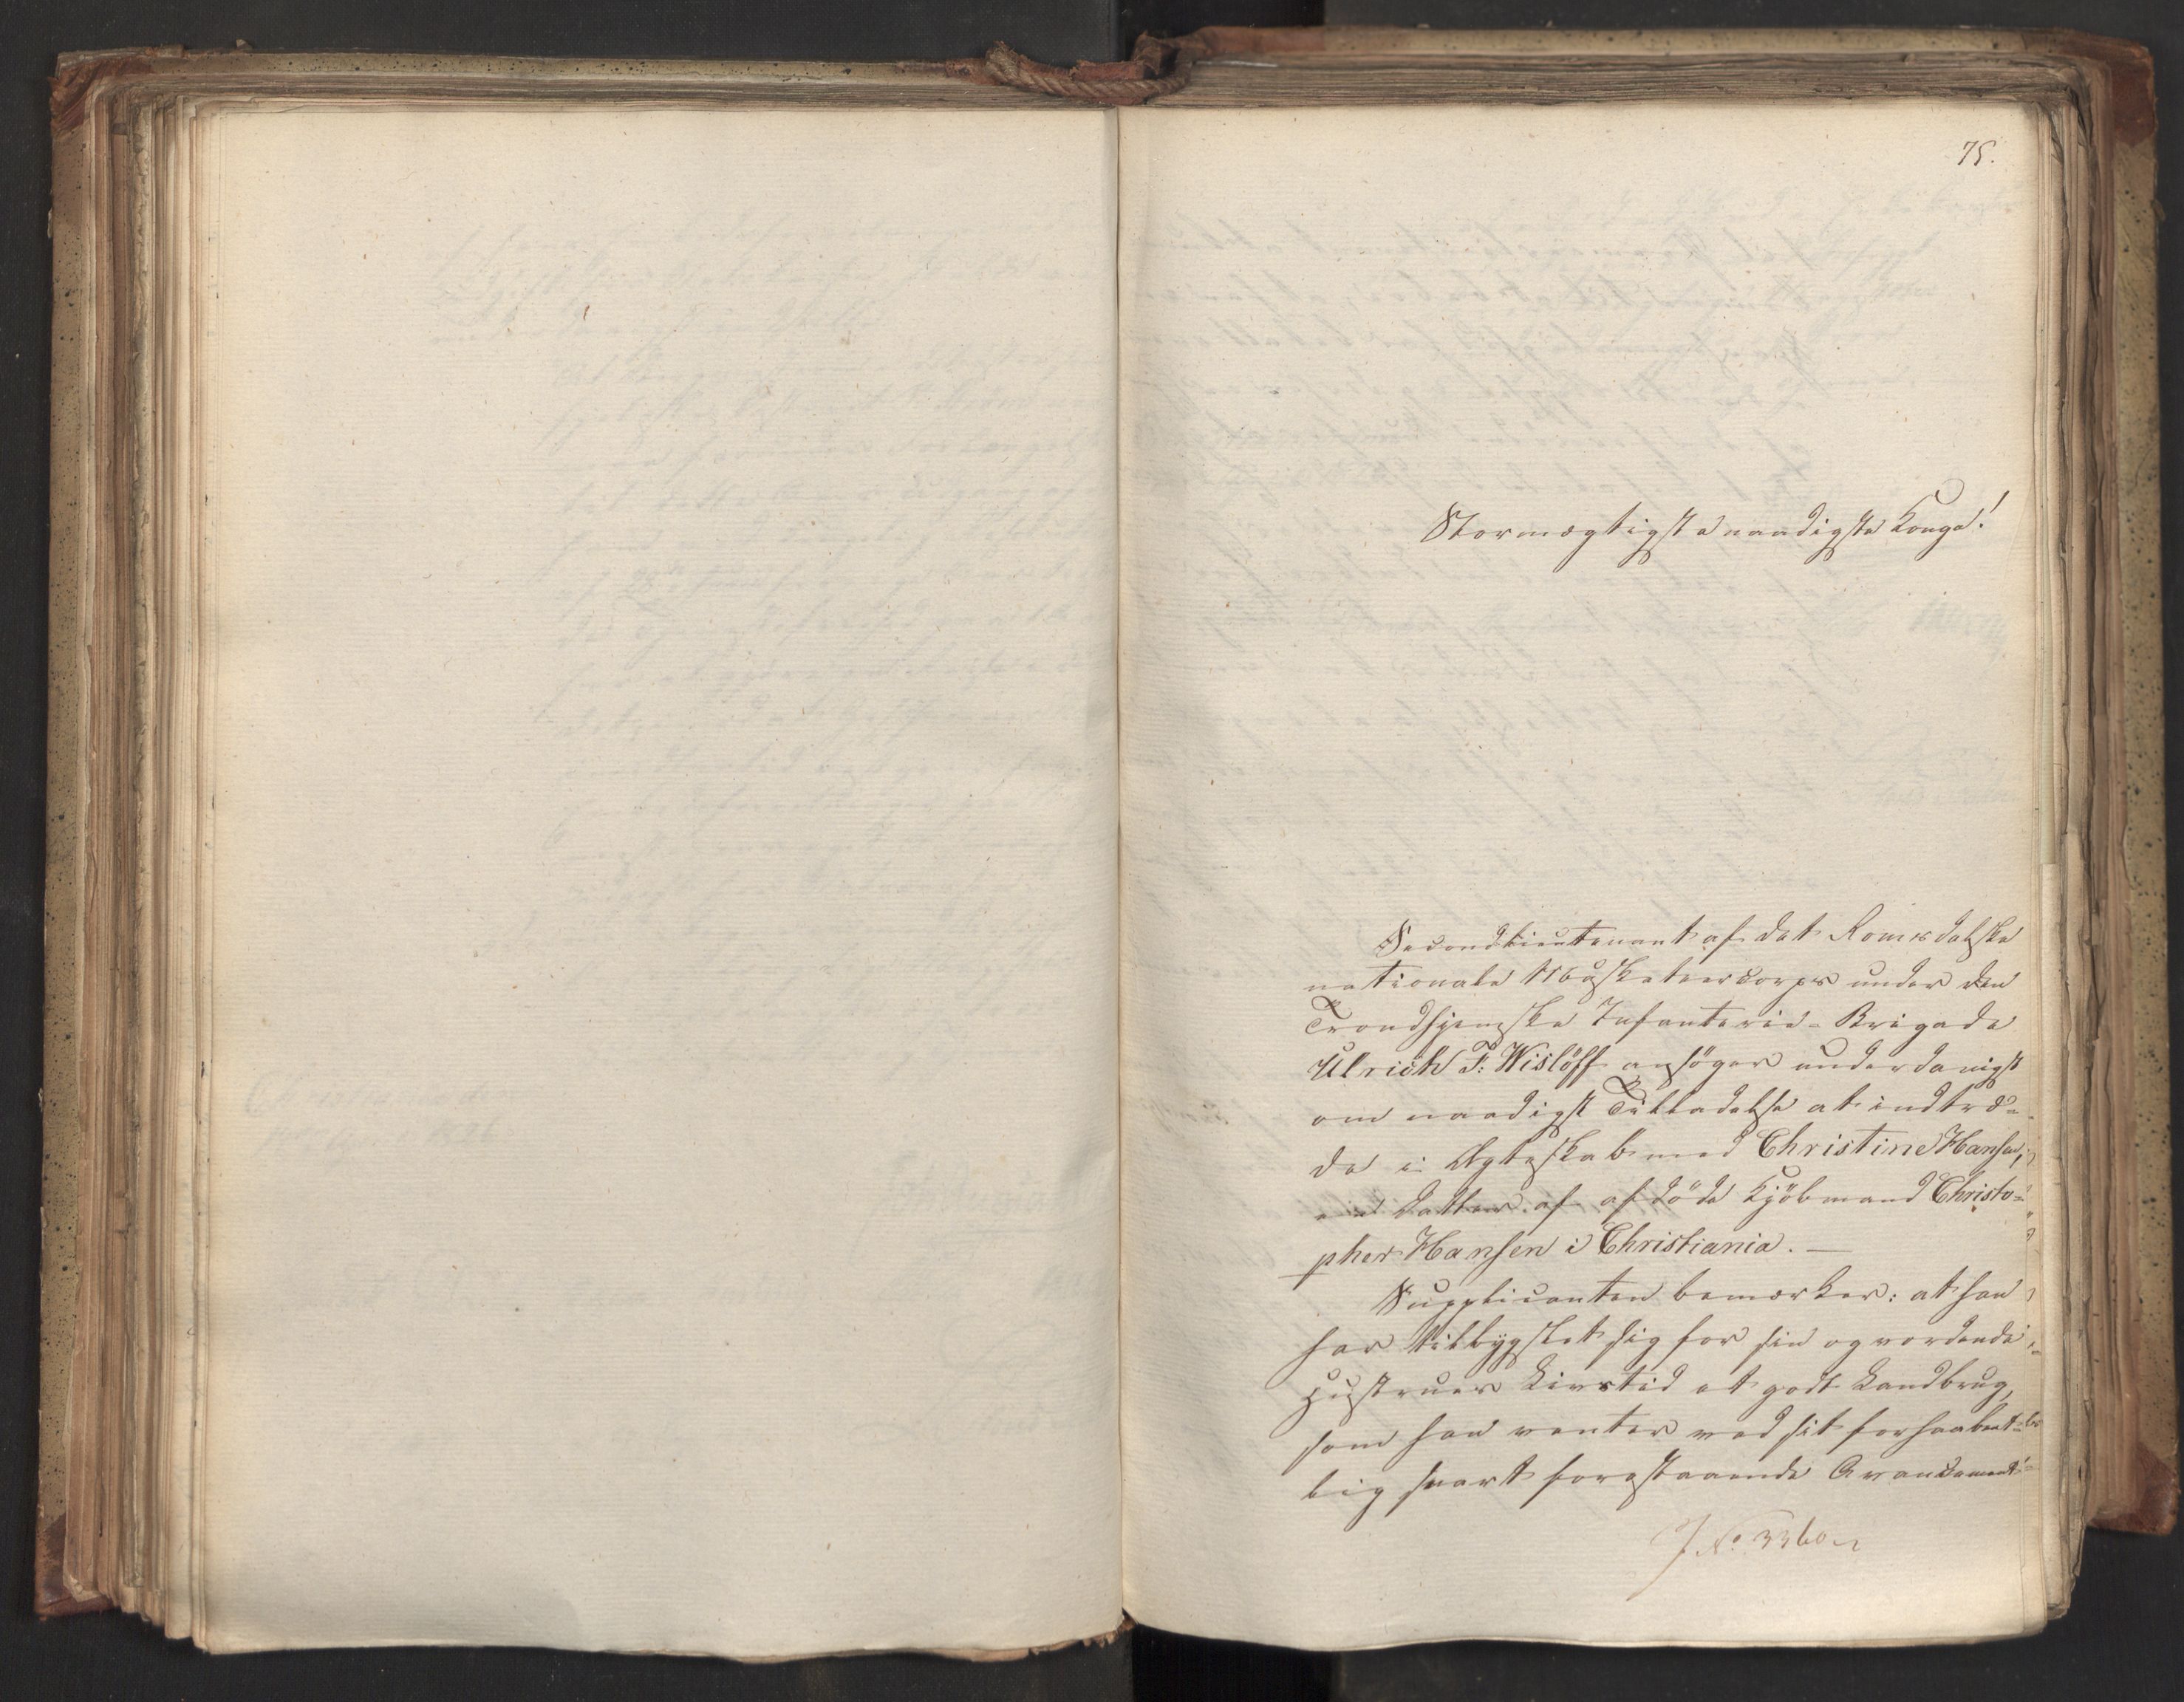 75.
Stormægtigste naadigste Konge!
Secondlieutenant af det Romsdalske
nationale Musketeercorps under den
Trondhjemske Infanterie-Brigade
Ulrich F: Wislöff ansöger underdanigst
om naadigst Tilladelse at indtræ-
de i Ægteskab med Christine Hansen,
en Datter af afdöde Kjöbmand Christo-
pher Hansen i Christiania. —
Supplicanten bemærker: at han
har tilbyxlet sig for sin og vordende
Hustrues Livstid et godt Landbrug,
som han venter ved sit forhaabent-
lig snart forestaaende Avancement
J. No. 3360